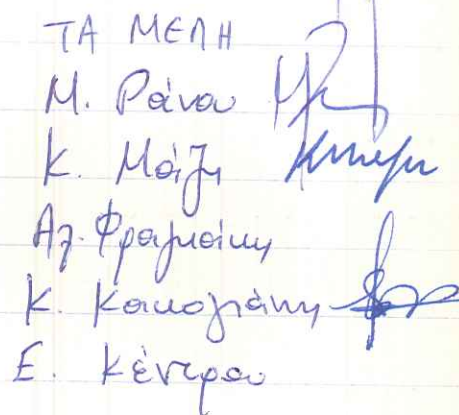 ΤΑ ΜΕΛΗ
Μ. Ράνου
Κ. Μάζη
Αγ. Φραγκάκη
Κ. Κακογιάννη
Ε. Κέντρου